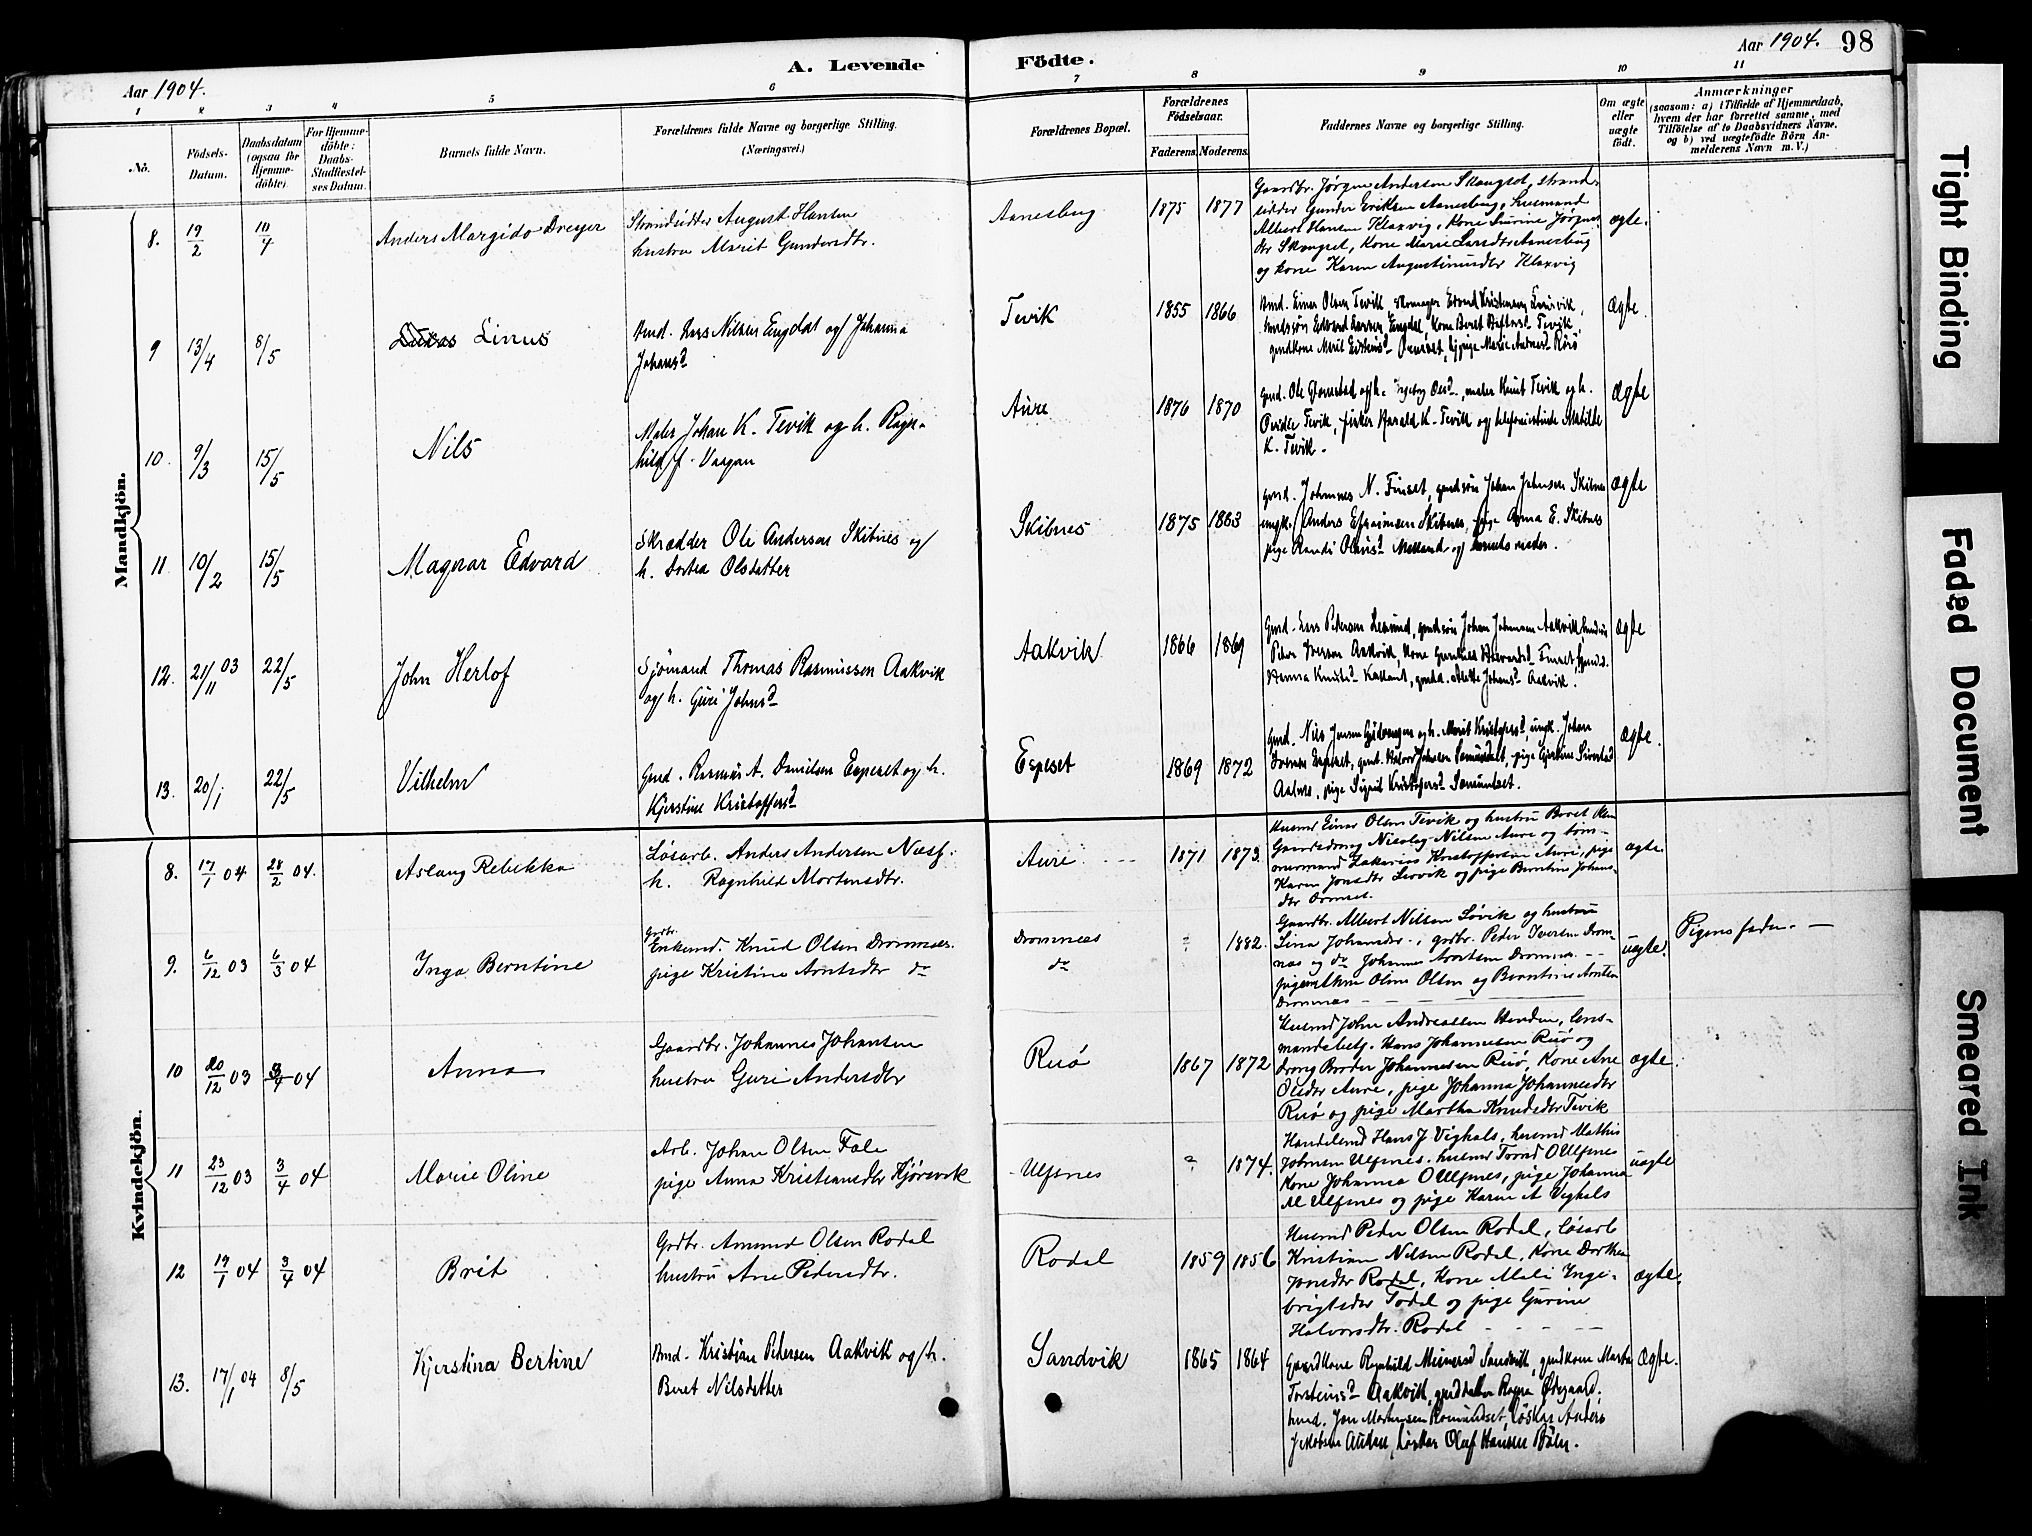 Aar 1904.
A. Levende Födte.
Aar 1904. 98
1 2 3 4 5 6 7 8 9 10 11
No.
Födsels-Datum.
Daabsdatum (ogsaa for Hjemmedöbte).
For Hjemmedöbte: Daabs-Stadfæstelses Datum.
Barnets fulde Navn.
Forældrenes fulde Navne og borgerlige Stilling. (Næringsvei.)
Forældrenes Bopæl.
Forældrenes Födselsaar.
Faderens. Moderens.
Faddernes Navne og borgerlige Stilling.
Om ægte eller uægte födt.
Anmærkninger
(saasom: a) i Tilfælde af Hjemmedaab, hvem der har forrettet samme, med Tilföielse af to Daabsvidners Navne, og b) ved uægtefödte Börn Anmelderens Navn m. V.)
Mandkjön.
8. 19/2 10/4 Anders Margido Dreyer
Strandsidder August Hansen
hustru Marit Gundersdtr.
Aanesbug 1875 1877
Gaardbr. Jørgen Andersen Skougset, strand-
sidder Gunder Eriksen Aanesbug, husmand
Albert Hansen Klaxvig, Kone
Skougset, Kone Marie Larsdtr Aanesbug
og kone Karen Augustinusdtr Klaxvig
ægte.
9 13/4 8/5 Linus
Lars Nilsen Engdal og Johanna
Johansd
Tevik 1855 1866
Einar Olsen Tevik
Edvard Larsen Engdal, Kone Beret Tevik,
gmdkone Marit
ægte.
10. 9/3 15/5 Nils
Maler Johan K. Tevik og h. Ragn-
hild f. Vaagan
Aure 1876 1870
Gmd. Ole maler Knut Tevik og h.
Tevik, fisker Harald K. Tevik og telefonistinde Mathilde
K. Tevik.
Ægte
11 10/2 15/5 Magnar Edvard
Skrædder Ole Andersen Skibnes og
h. Dortea Olsdatter
Skibnes 1875 1863
Gmd. Johannes N. Finset, gmdsön Johan Johnsen Skibnes
ungk. Anders Efraimsen Skibnes, pige Anna E. Skibnes
pige Randi og barnets moder.
ægte
12. 21/11 03 22/5 John Herlof
Sjömand Thomas Rasmussen Aakvik
og h. Guri Johnsd
Aakvik 1866 1869
Gmd. Lars Pedersen gmdsön Johan Johnsen Aakvik
Peter Iversen Aakvik, Kone Finset
Hanna Knutsd Aakvik.
ægte
13. 20/1 22/5 Vilhelm
Gmd. Rasmus A. Danielsen Espeset og h.
Kjerstine Kristoffersd
Espeset 1869 1872
Gmd. Nils Jensen og h. Marit Kristoffersd, ungk. Johan
Espeset, gmd. Halvor Johnsen
pige Sigrid Kristoffersd
ægte.
Kvindekjön.
8. 17/1 04 28/2 04. Aslaug Rebekka
Løsarb. Anders Andersen Næss
h. Ragnhild Mortensdtr.
Aure 1871 1873.
Husmd Einar Olsen Tevik og hustru Beret
Gaardsdreng Nicolay Nilsen Aure og tøm-
mermand Zakarias Kristoffersen Aure, pige
Karen Jonsdtr Lervik og pige Berntine Johans-
dtr Ormset.
ægte.
9. 6/12 03 6/3 04 Inga Berntine
gdbr.
Enkemd. Knud Olsen Dromnes.
pige Kristine Arntsdtr do
Dromnæs ? 1882.
do
Gaardbr. Albert Nilsen Løvik og hustru
Lina Johansdtr. gdbr. Peder Iversen Drom-
næs og do Johannes Arntsen Dromnæs
pigerne Oline Olsen og Berntine Arntsen
Dromnæs
uægte.
Pigens fader.
10 20/12 03 3/4 04 Anna
Gaardbr. Johannes Johansen
hustru Guri Andersdtr
Ruø 1867 1872
Husmd John Andreassen Henden, lens-
mandsbetj. Hans Johannesen Ruø og
dreng Broder Johannesen Ruø, Kone Ane
Olsdtr Aure, pige Johanna Johannesdtr
Ruø og pige Martha Knudsdtr Tevik
ægte.
11 23/12 03 3/4 04 Marie Oline
Arb. Johan Olsen Fale
pige Anna Kristiansdtr Kjørsvik
Ulfsnes ? 1874.
Handelsmd Hans J Vighals, husmd Mathis
Johnsen Ulfsnes, husmd Tored O Ulfsnes
Kone Johanna O Ulfsnes, pige Johanna
M Ulfsnes og pige Karen A Vighals
uægte
12 19/1 04 3/4 04 Brit
Gdbr. Amund Olsen Rodal
hustru Ane Pedersdtr.
Rodal 1859 1856
Husmd Peder Olsen Rodal, løsarb
Kristian Nilsen Rodal, Kone Dorthea
Jonsdtr Rodal, Kone Mali Inge-
brigtsdtr Todal og pige Gurine
Halvorsdtr. Rodal
ægte.
13. 17/1 04 8/5 Kjerstina Bertine
Kristian Pedersen Aakvik og h.
Beret Nilsdatter
Sandvik 1865 1864
Gaardkone Ragnhild Sandvik, gmdkone Marta
Torsteinsd Aakvik, gmddatter Ragna Ødegaard,
husmd. Jon Mortensen Romundset, løskar Anders
Jakobsen løskar Oluf Hansen
Ægte.
Tight Binding
Faded Document
Smeared Ink